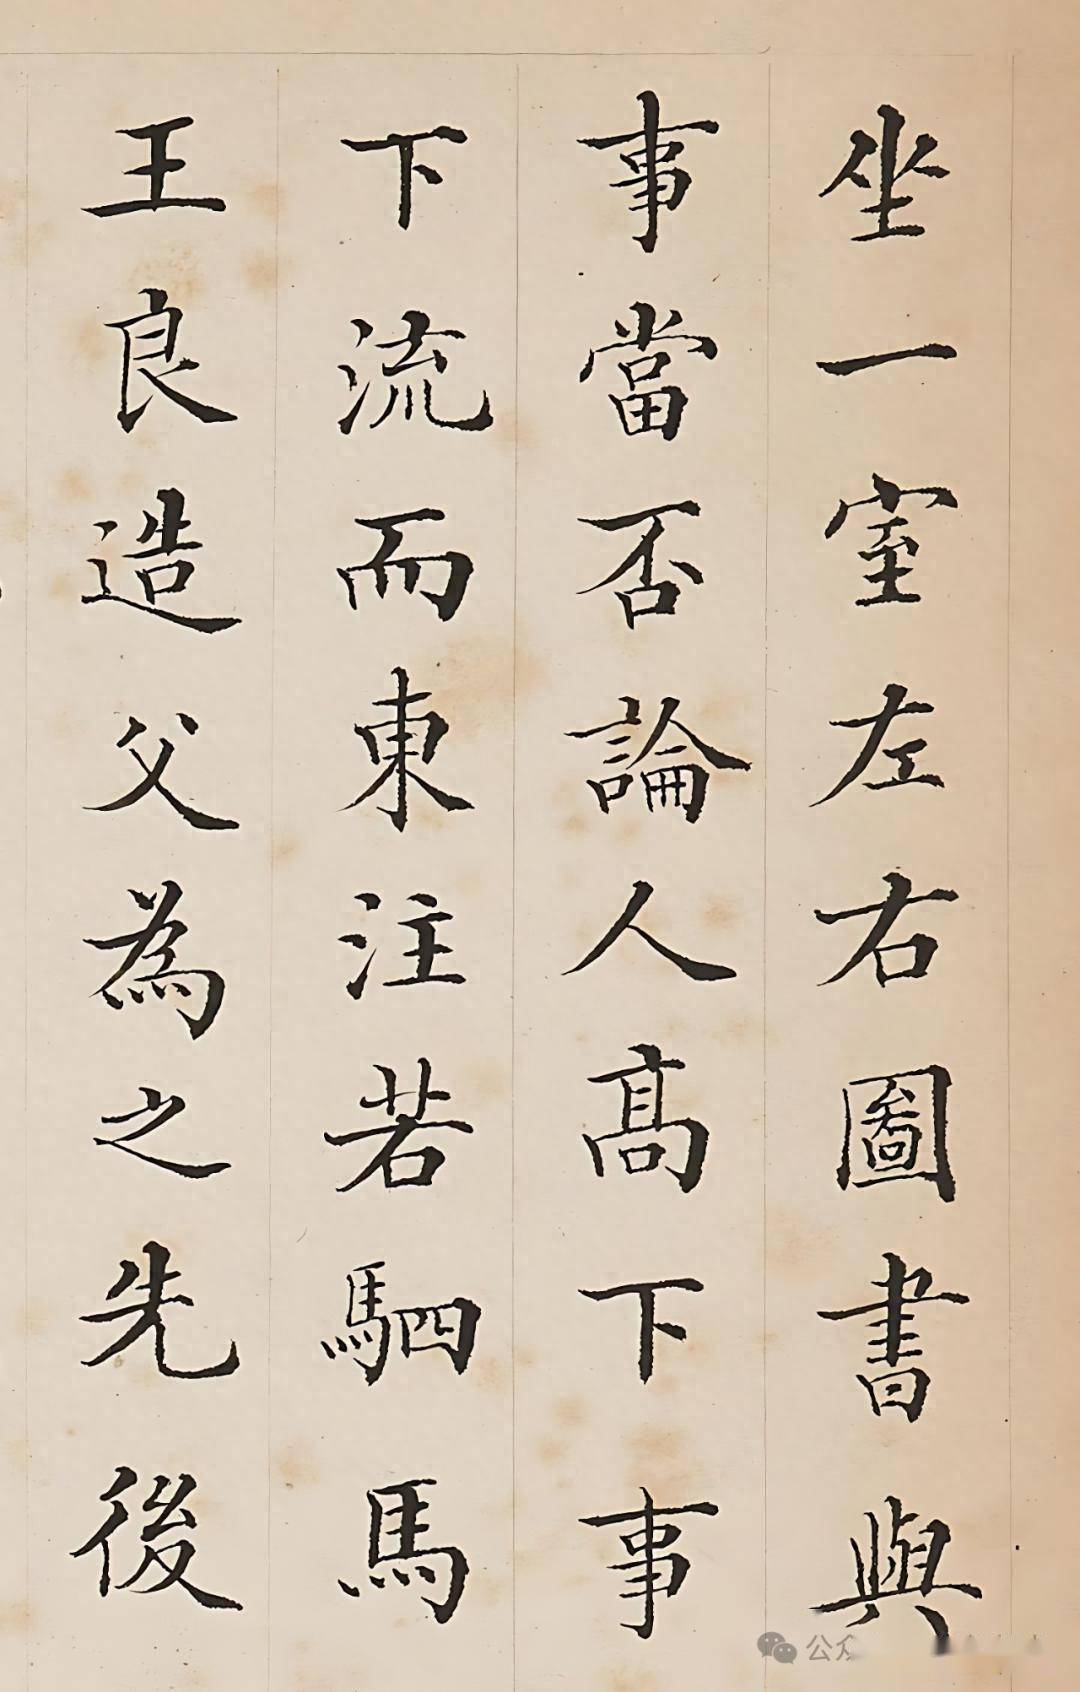 坐一室左右圖書與
事當否論人高下事
下流而東注若駟馬
王良造父為之先後
公众